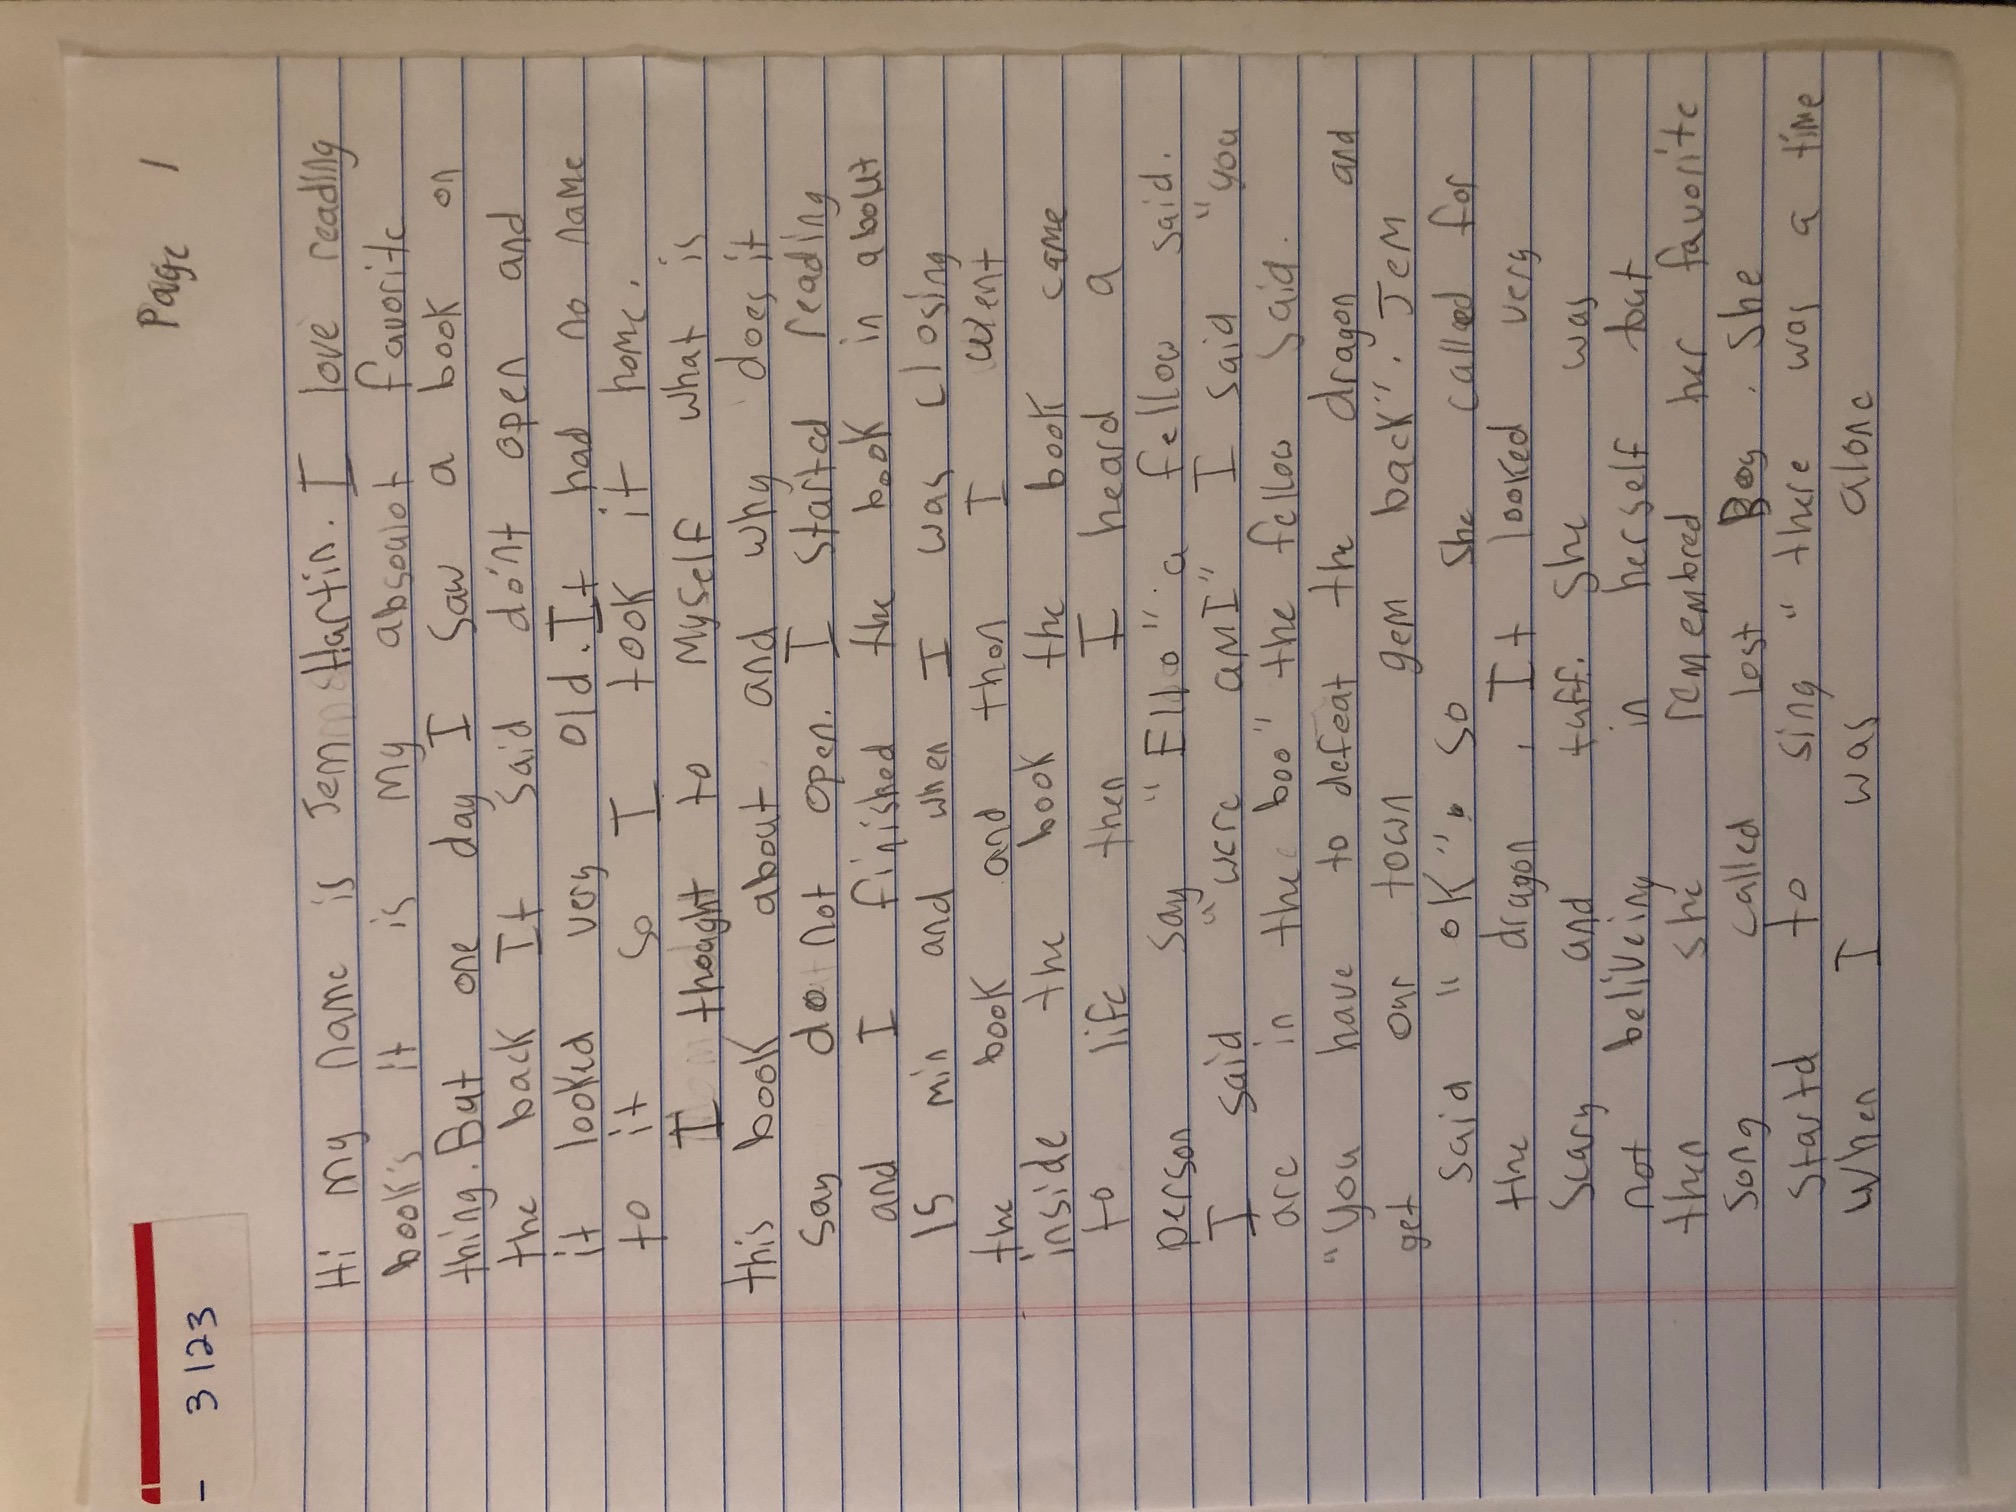 - 3123
Page 1
Hi my name is Jem Hartin. I love reading
book's it is my absoulot favorite
thing. But one day I saw a book on
the back It said do'nt open and
it looked very old. It had no name
to it so I took it home.
I thought to myself what is
this book about and why does it
say do not open. I started reading
and I finished the book in about
15 min and when I was closing
the book and then I went
inside the book the book came
to life then I heard a
person say "Ello" a fellow said.
I said "were am I" I said "you
are in the boo" the fellow said.
"You have to defeat the dragon and
get our town gem back". Jem
said "ok". so she called for
the dragon, It looked very
scary and tuff. She was
not beliveing in herself but
then she remembred her favorite
song called Lost Boy. She
startd to sing "there was a time
when I was alone